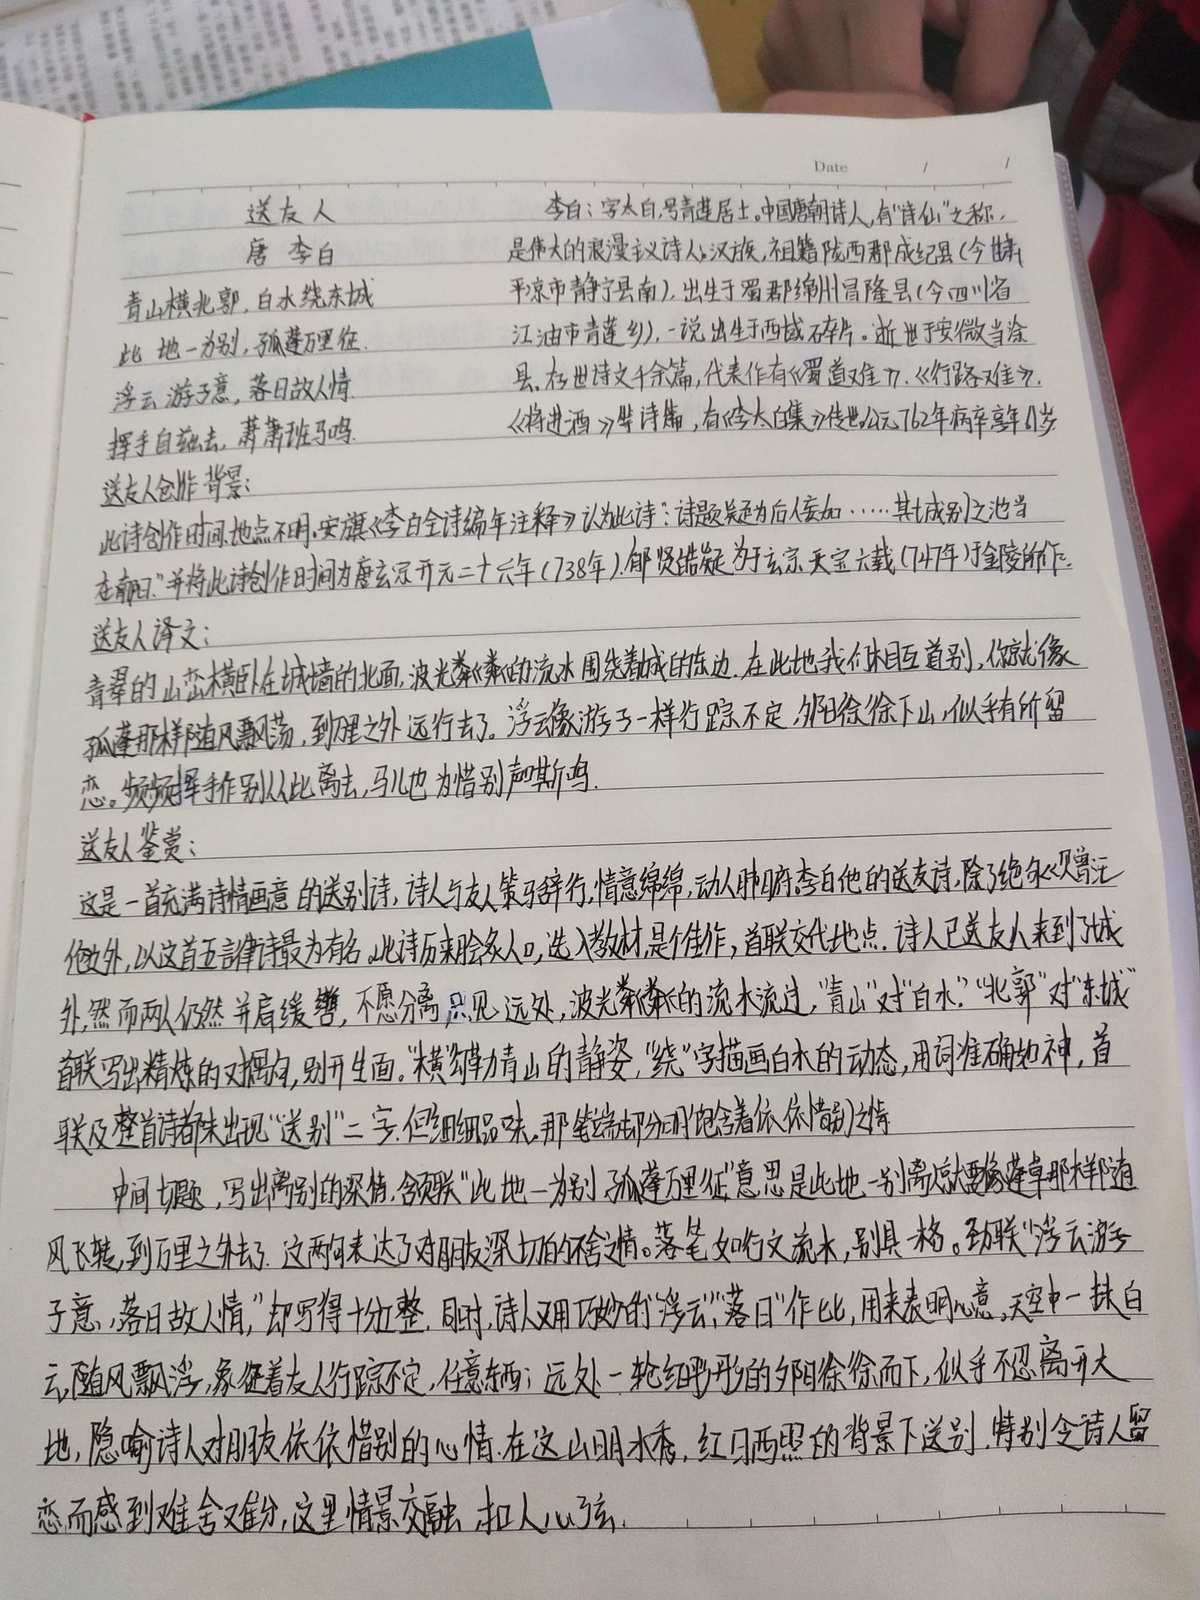 Date / /
送友人
唐 李白
青山横北郭，白水绕东城
此地一为别，孤蓬万里征.
浮云游子意，落日故人情.
挥手自兹去，萧萧班马鸣.
李白；字太白，号青莲居士。中国唐朝诗人，有“诗仙”之称，
是伟大的浪漫主义诗人。汉族，祖籍陇西郡成纪县（今甘肃
平凉市静宁县南），出生于蜀郡绵州昌隆县（今四川省
江油市青莲乡），一说出生于西域碎片。逝世于安徽当涂
县，存世诗文千余篇，代表作有《蜀道难》.《行路难》.
《将进酒》等诗篇，有《李太白集》传世。公元762年病卒享年61岁
送友人创作背景：
此诗创作时间、地点不明。安旗《李白全诗编年注释》认为此诗：诗题疑为后人妄加……其城别之池当
在南阳.”并将此诗创作时间为唐玄宗开元二十六年（738年）.郁贤皓疑为于玄宗天宝六载（747年）于金陵所作。
送友人译文：
青翠的山峦横卧在城墙的北面，波光粼粼的流水围绕着城的东边.在此地我们休相互首别，你就像
孤蓬那样随风飘荡，到万里之外远行去了。浮云像游子一样行踪不定，夕阳徐徐下山，似乎有所留
恋。频频挥手作别从此离去，马儿也为惜别声声嘶鸣.
送友人鉴赏：
这是一首充满诗情画意的送别诗，诗人与友人策马辞行，情意绵绵，动人肺腑.李白他的送友诗，除了绝句《赠汪
伦》外，以这首五言律诗最为有名.此诗历来脍炙人口，选入教材，是个佳作，首联交代地点.诗人已送友人来到了城
外，然而两人仍然并肩缓辔，不愿分离，只见远处，波光粼粼的流水流过，“青山”对“白水”？“北郭”对“东城”
首联写出精炼的对偶句，别开生面。“横”勾勒青山的静姿，“绕”字描画白水的动态，用词准确如神，首
联及整首诗都未出现“送别”二字.但细细品味，那笔端却分明饱含着依依惜别之情
中间切题，写出离别的深情，颔联“此地一为别 孤蓬万里征”意思是此地一别离后就要像蓬草那样随
风飞转，到万里之外去了.这两句表达了对朋友深切的不舍之情。落笔如行文流水，别具一格。劲联“浮云游子
子意，落日故人情，”却写得十分工整.同时，诗人又用巧妙的“浮云”“落日”作比，用来表明心意，天空中一抹白
云，随风飘浮，象征着友人行踪不定，任意东西；远处一轮红彤彤的夕阳徐徐而下，似乎不忍离开大
地，隐喻诗人对朋友依依惜别的心情.在这山明水秀，红日西照的背景下送别.特别令诗人留
恋而感到难舍难分，这里情景交融，扣人心弦.